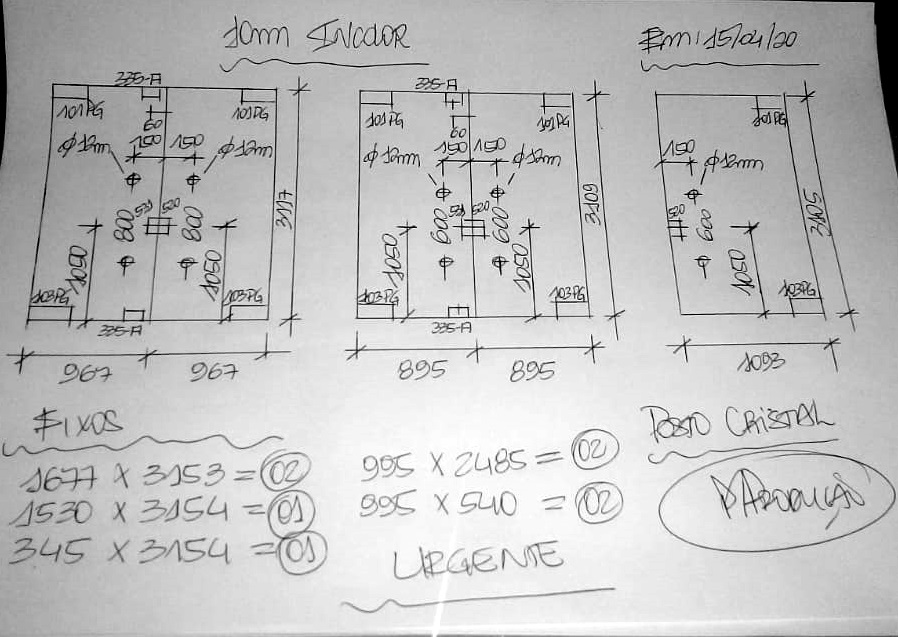 10mm INCOLOR
Em: 15/04/20
335-A
101PG
101PG
60
150
150
Φ 12mm
Φ 12mm
800
531
520
800
1050
1050
3117
103PG
103PG
335-A
967
967
335-A
101PG
101PG
60
150
150
Φ 12mm
Φ 12mm
600
531
520
600
1050
1050
3109
103PG
103PG
335-A
895
895
101PG
150
Φ 12mm
520
600
1050
3105
103PG
1093
FIXOS
1677 X 3153 = 02
1530 X 3154 = 01
345 X 3154 = 01
995 X 2485 = 02
995 X 540 = 02
URGENTE
POSTO CRISTAL
P/PRODUÇÃO